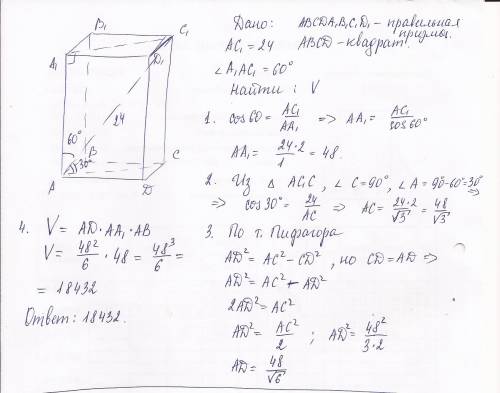 Дано: ABCDA₁B₁C₁D₁ - правильная
призмы.
AC₁ = 24 ABCD - квадрат.
∠A₁AC₁ = 60°
Найти: V
1. cos60 = AC₁/AA₁ => AA₁ = AC₁/cos60°
AA₁ = 24·2/1 = 48.
2. Из △ AC₁C, ∠C = 90°, ∠A = 90-60°=30°
=> cos30° = 24/AC => AC = 24·2/√3 = 48/√3
3. По т. Пифагора
AD² = AC² - CD², но CD = AD =>
AD² = AC² - AD²
2AD² = AC²
AD² = AC²/2 ; AD² = 48²/3·2
AD = 48/√6
4. V = AD·AA₁·AB
V = 48²/6 · 48 = 48³/6 =
= 18432
Ответ: 18432.
B₁
C₁
A₁
D₁
24
60°
B
30°
C
A
D